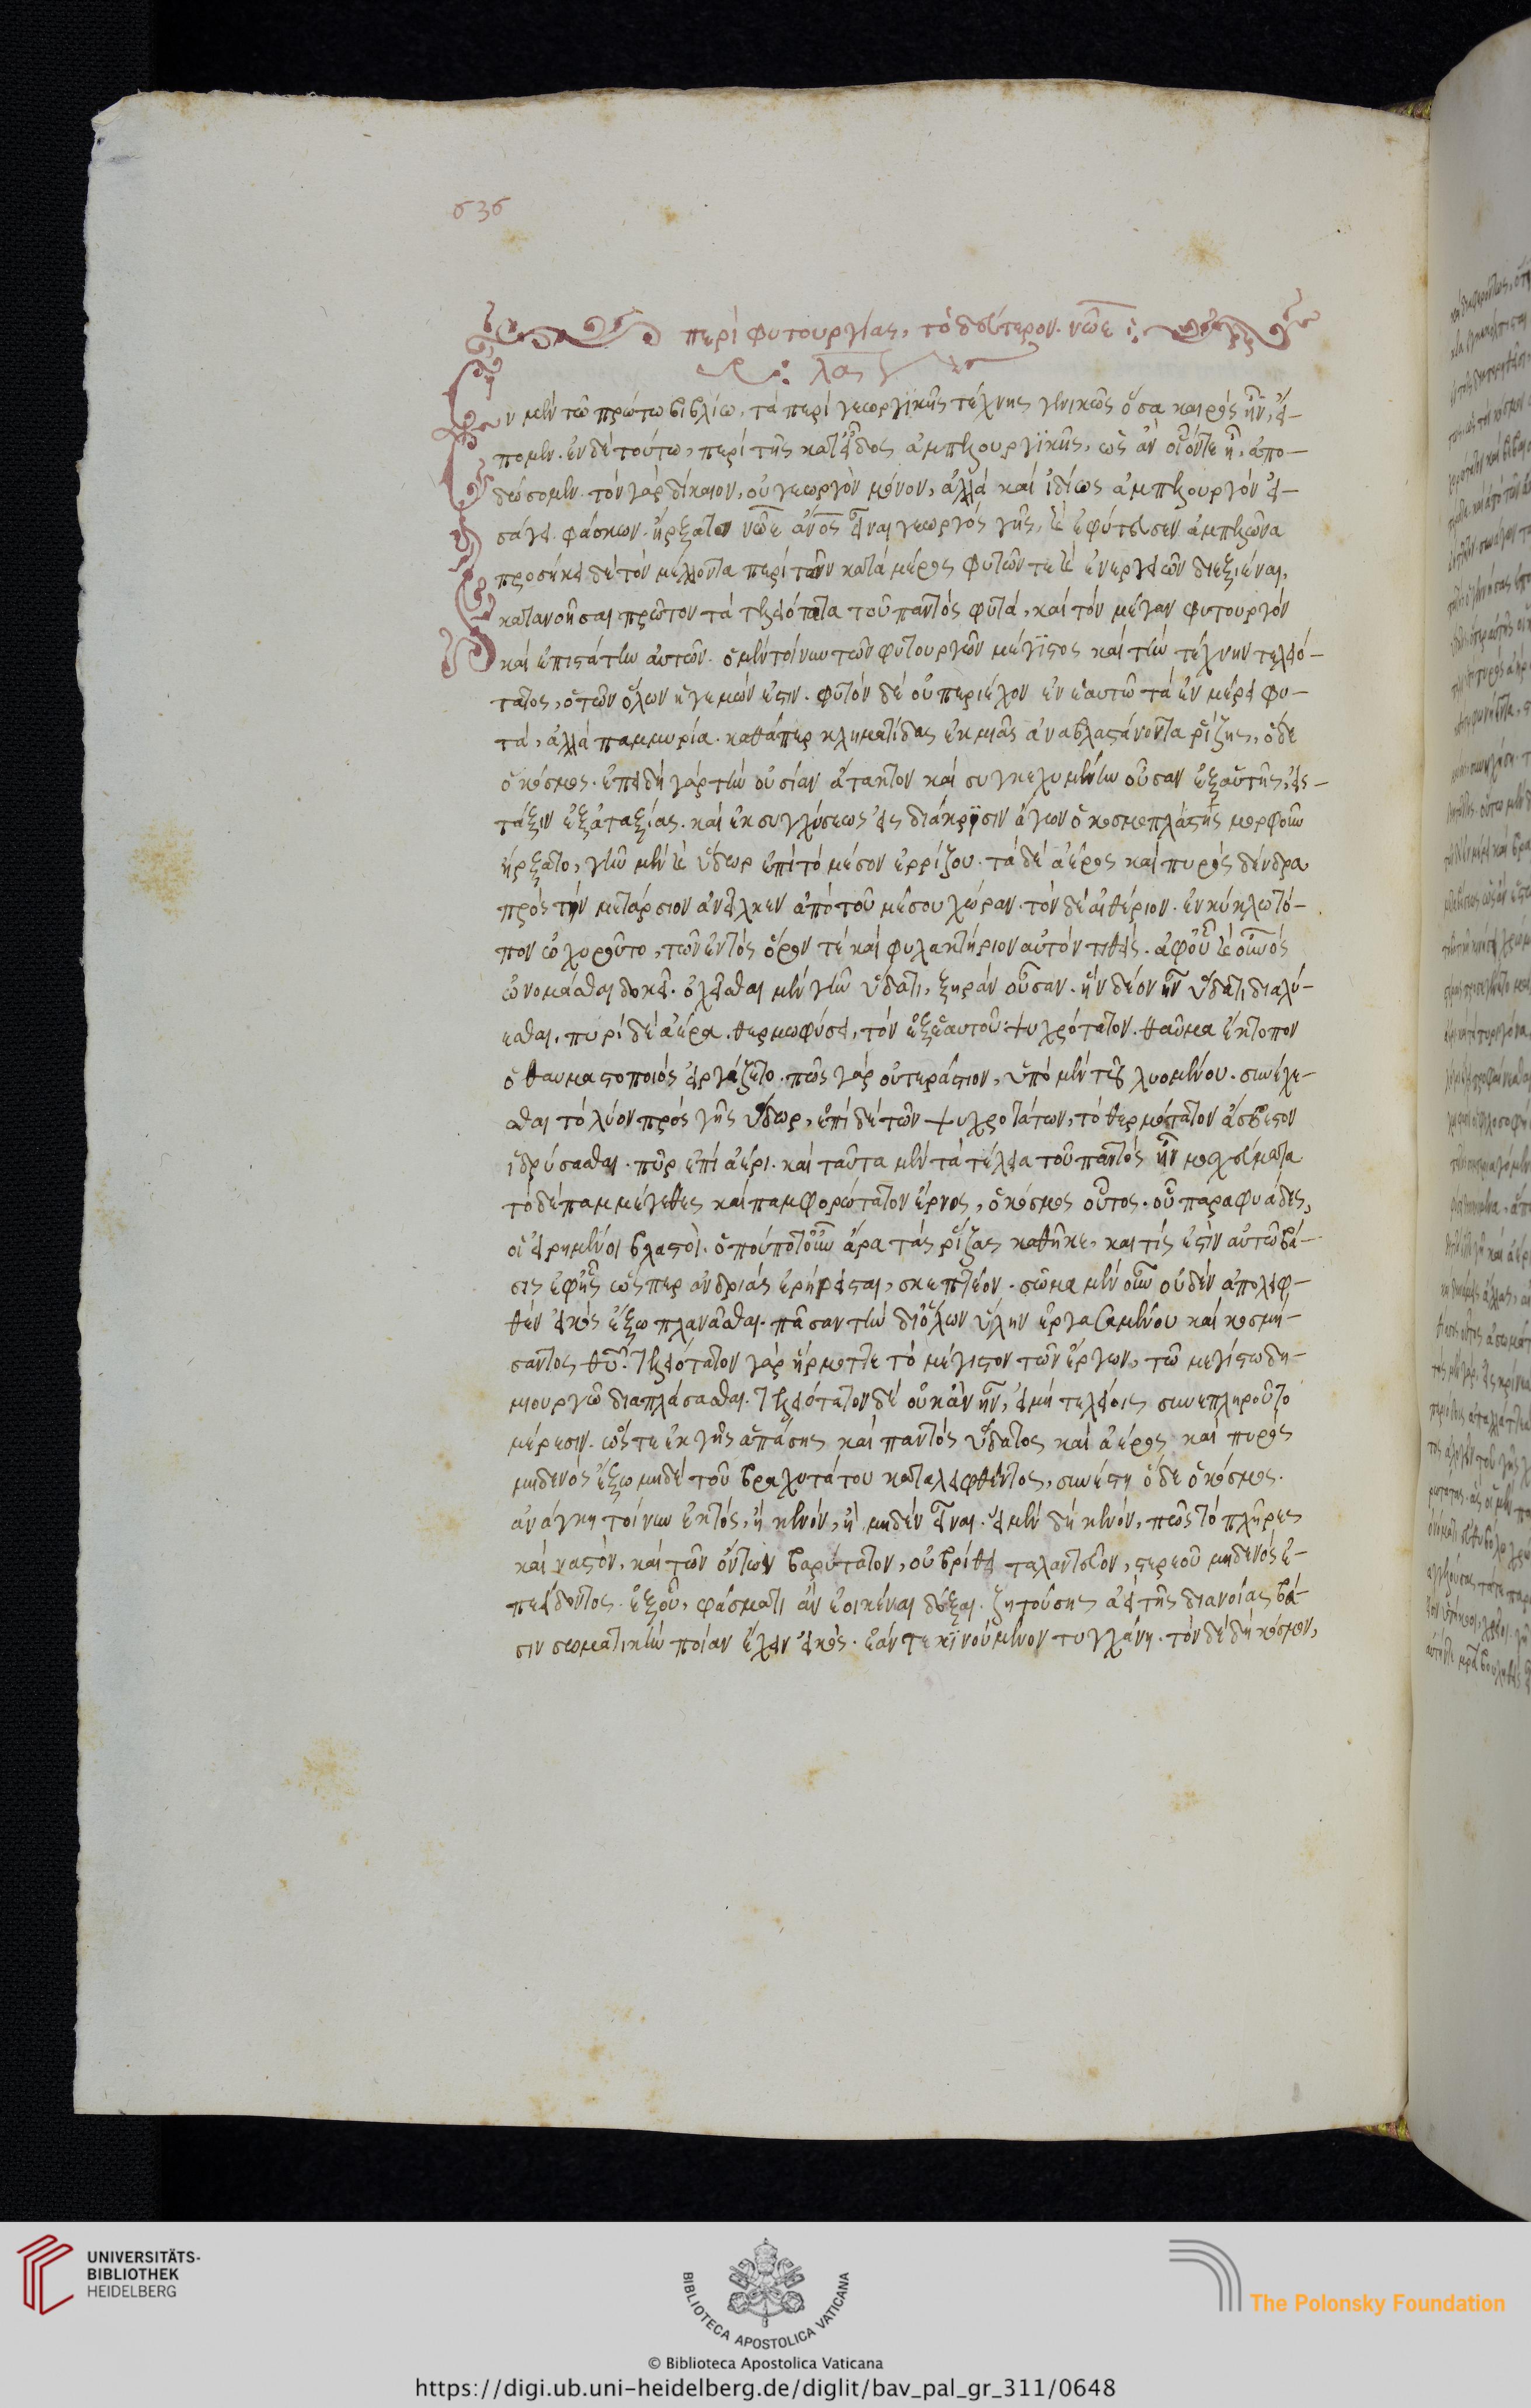 636
περὶ φυτουργίας, τὸ δεύτερον. νῶε
λα
ν μὲν τῶ πρώτω βιβλίω, τὰ περὶ γεωργικῆς τέχνης γενικῶς ὅσα καιρὸς ἦν, εἴ-
πομεν. ἐν δὲ τούτω, περὶ τῆς κατ' εἶδος ἀμπελουργϊκῆς, ὡς ἂν οἷόντε ἦ, ἀπο-
δώσομεν. τὸν γὰρ δίκαιον, οὐ γεωργὸν μόνον, ἀλλὰ καὶ ἰδίως ἀμπελουργὸν εἰ-
σάγει φάσκων. ἤρξατο νῶε ἄνος εἶναι γεωργὸς γῆς, καὶ ἐφύτευσεν ἀμπελῶνα
προσήκει δὲ τὸν μέλλοντα περὶ τῶν κατὰ μέρος φυτῶν τε καὶ ἐνεργειῶν διεξιέναι,
κατανοῆσαι πρῶτον τὰ τελειότατα τοῦ παντὸς φυτά, καὶ τὸν μέγαν φυτουργὸν
καὶ ἐπιστάτην αὐτῶν. ὁ μὲν τοίνυν τῶν φυτουργῶν μέγϊστος καὶ τὴν τέχνην τελειό-
τατος, ὁ τῶν ὅλων ἡγεμών ἐστιν. φυτὸν δὲ οὐ περιέχον ἐν ἑαυτῶ τὰ ἐν μέρει φυ-
τά, ἀλλὰ παμμυρία. καθάπερ κληματίδας ἐκ μιᾶς ἀναβλαστάνοντα ῥίζης, ὅδε
ὁ κόσμος. ἐπειδὴ γὰρ τὴν οὐσίαν ἄτακτον καὶ συγκεχυμένην οὖσαν ἐξ αὑτῆς, εἰς
τάξιν ἐξ ἀταξίας. καὶ ἐκ συγχύσεως εἰς διάκρϊσιν ἄγων ὁ κοσμοπλάστης μορφοῦν
ἤρξατο, γῆν μὲν καὶ ὕδωρ ἐπὶ τὸ μέσον ἐρρίζου. τὰ δὲ ἀέρος καὶ πυρὸς δένδρα
πρὸς τὴν μετάρσιον ἀνεῖλκεν ἀπὸ τοῦ μέσου χώραν. τὸν δὲ αἰθέριον. ἐν κύκλω τό-
πον ὠχυροῦτο, τῶν ἐντὸς ὅρον τὲ καὶ φυλακτήριον αὐτὸν τιθείς. ἀφ' οὗ καὶ οὐνὸς
ὠνομάσθαι δοκεῖ. ὀχεῖσθαι μὲν γῆν ὕδατι, ξηρὰν οὖσαν. ἣν δέον ἦν ὕδατι διαλύ-
εσθαι, πυρὶ δὲ ἀέρα. θερμῶ φύσει, τὸν ἐξ ἑαυτοῦ ψυχρότατον. θαῦμα ἔκτοπον
ὁ θαυματοποιὸς εἰργάζετο. πῶς γὰρ οὐ τεράστιον, ὑπὸ μὲν τοῦ λυομένου. συνέχε-
σθαι τὸ λύον πρὸς γῆς ὕδωρ, ἐπὶ δὲ τῶν ψυχροτάτων, τὸ θερμότατον ἄσβεστον
ἱδρύσασθαι. πῦρ ἐπὶ ἀέρι. καὶ ταῦτα μὲν τὰ τέλεια τοῦ παντὸς ἦν μοσχεύματα
τὸ δὲ παμμέγεθες καὶ παμφορώτατον ἔρνος, ὁ κόσμος οὗτος. οὗ παραφυάδες,
οἱ εἰρημένοι βλαστοί. ὅπου ποτ' οὖν ἄρα τὰς ῥίζας καθῆκε, καὶ τίς ἐστὶν αὐτῶ βά-
σις ἐφ' ἧς ὥσπερ ἀνδριὰς ἐρήρεισται, σκεπτέον. σῶμα μὲν οὖν οὐδὲν ἀπολειφ-
θὲν εἰκὸς ἔξω πλανᾶσθαι. πᾶσαν τὴν δι' ὅλων ὕλην ἐργασαμένου καὶ κοσμή-
σαντος θυ. τελειότατον γὰρ ἥρμοττε τὸ μέγιστον τῶν ἔργων, τῶ μεγίστω δη-
μιουργῶ διαπλάσασθαι. τελειότατον δὲ οὐκ ἂν ἦν, εἰ μὴ τελείοις συνεπληροῦτο
μέρεσιν. ὥστε ἐκ γῆς ἁπάσης καὶ παντὸς ὕδατος καὶ ἀέρος καὶ πυρὸς
μηδενὸς ἔξω μηδὲ τοῦ βραχυτάτου καταλειφθέντος, συνέστη ὅδε ὁ κόσμος.
ἀνάγκη τοίνυν ἐκτὸς, ἢ κενόν, ἢ μηδὲν εἶναι. εἰ μὲν δὴ κενόν, πῶς τὸ πλῆρες
καὶ ναστόν, καὶ τῶν ὄντων βαρύτατον, οὐ βρίθει ταλαντεῦον, στερεοῦ μηδενὸς ἐ-
πείδοντος. ἐξ οὗ, φάσματι ἂν ἐοικέναι δόξαι. ζητούσης ἀεὶ τῆς διανοίας βά-
σιν σωματικὴν ποίαν ἔχειν εἰκός. ἐάν τε κϊνούμενον τυγχάνη. τὸν δὲ δὴ κόσμον,
UNIVERSITÄTS-
BIBLIOTHEK
HEIDELBERG
BIBLIOTECA APOSTOLICA VATICANA
The Polonsky Foundation
© Biblioteca Apostolica Vaticana
https://digi.ub.uni-heidelberg.de/diglit/bav_pal_gr_311/0648